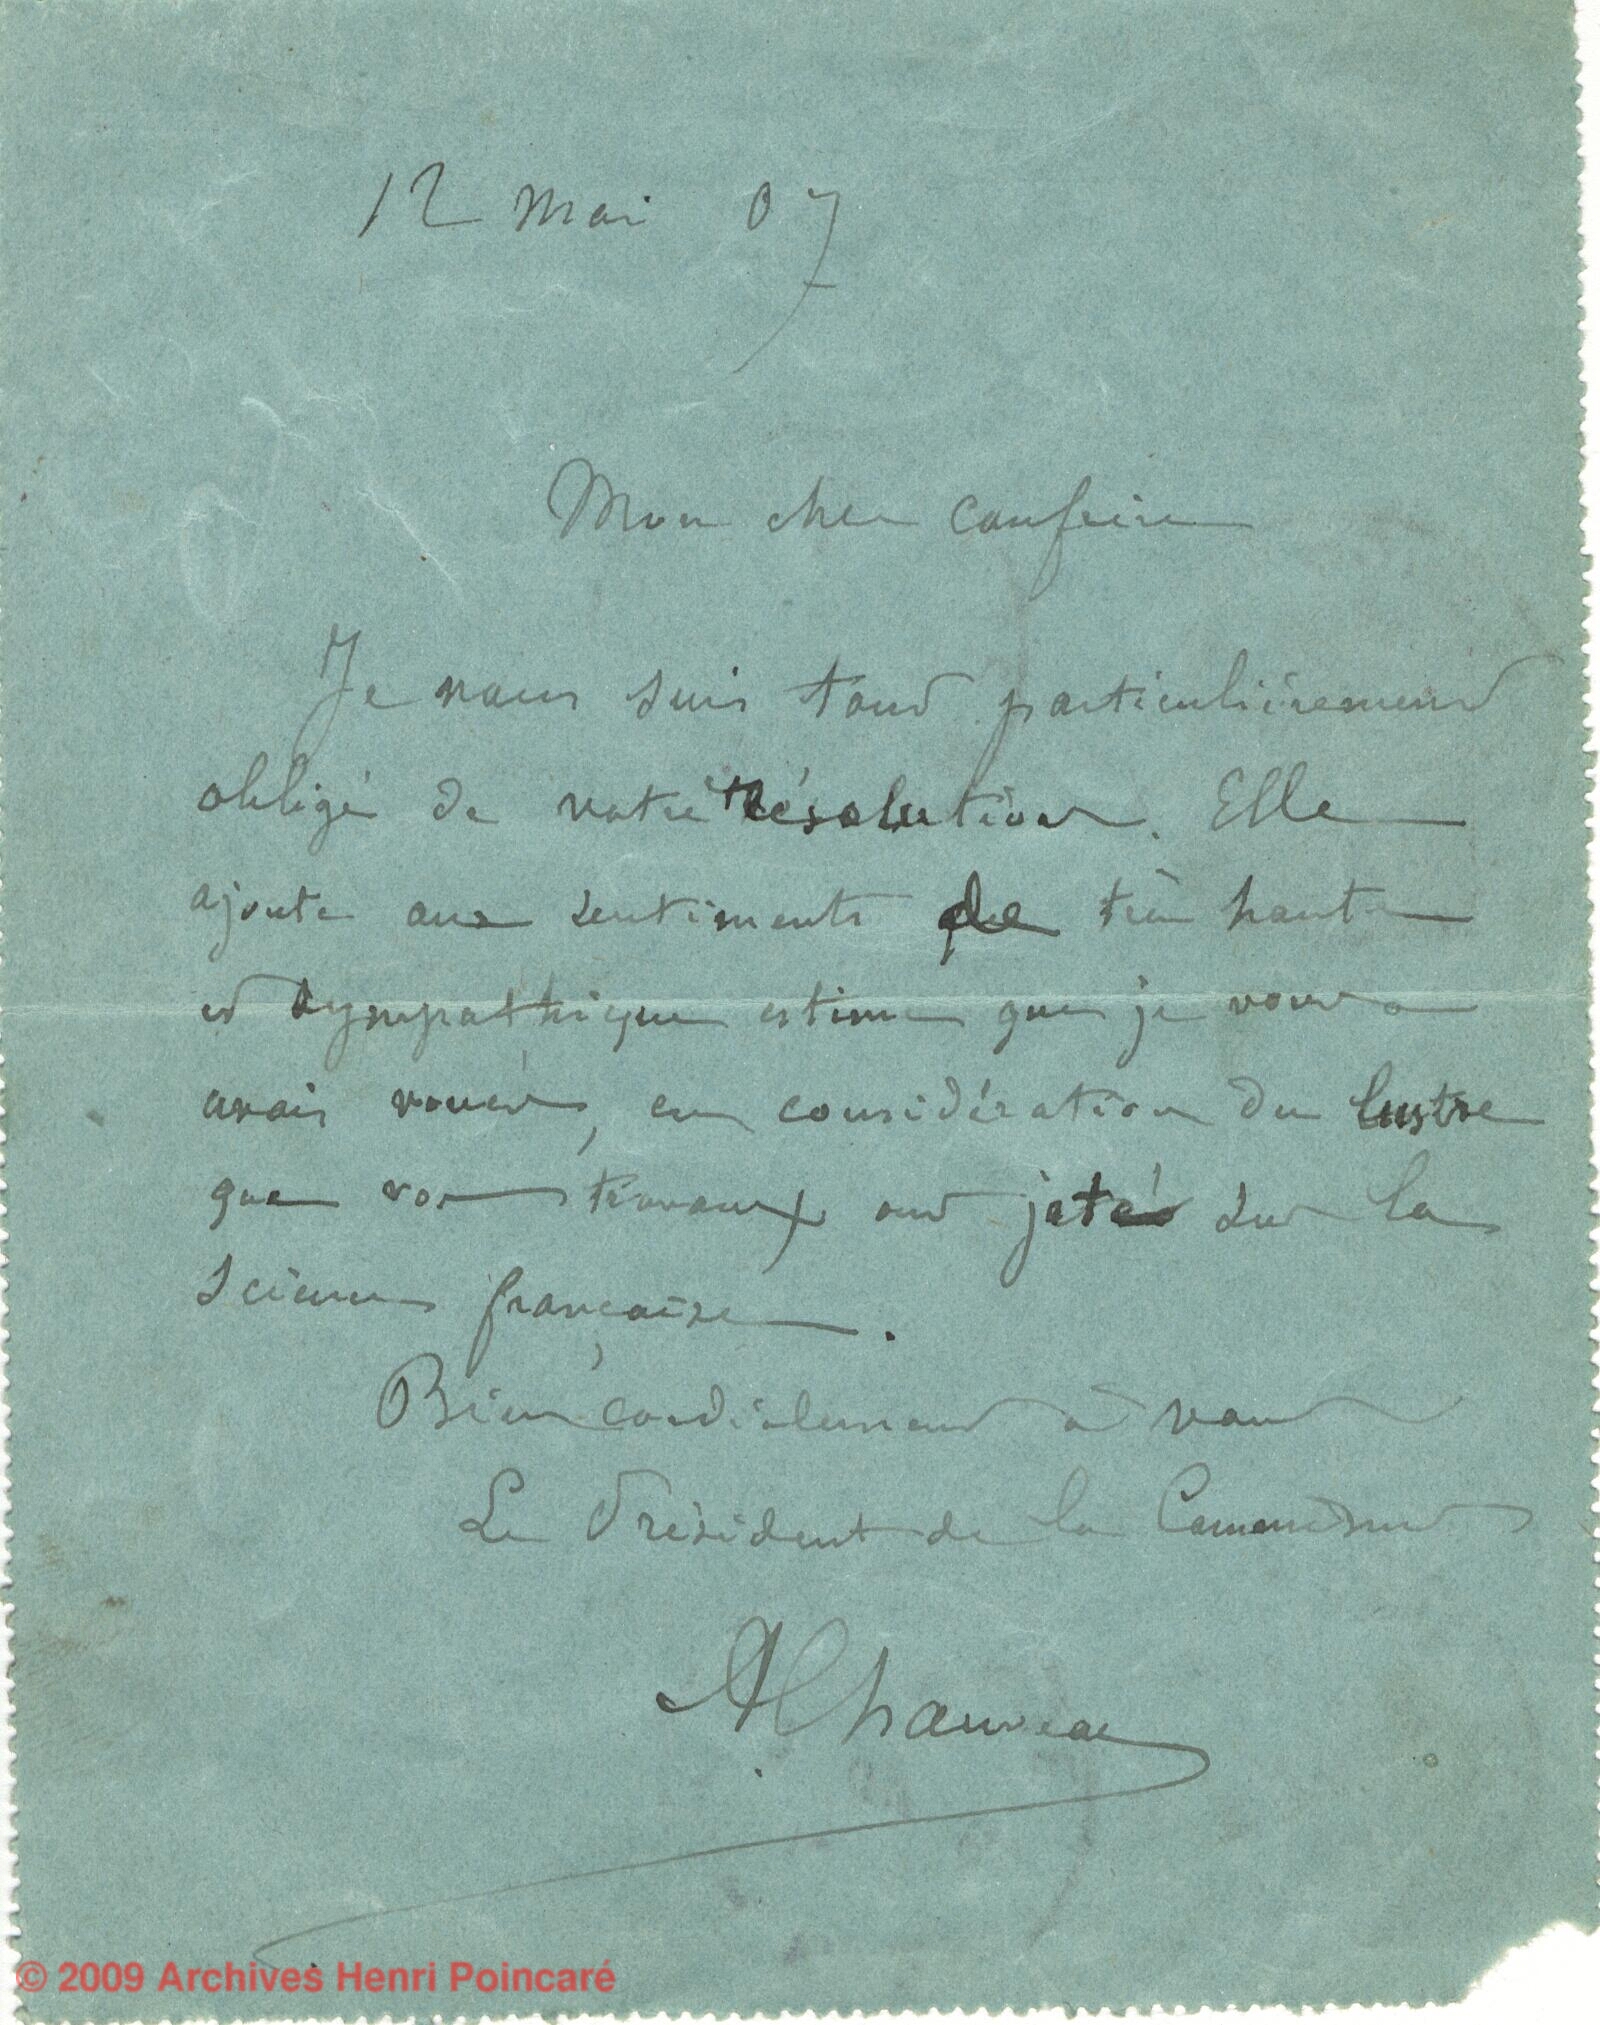 12 Mai 07
Mon cher confrère
Je vous suis tout particulièrement
obligé de votre résolution. Elle
ajoute aux sentiments de très haute
et sympathique estime que je vous
avais voués, en considération du lustre
que vos travaux ont jeté sur la
science française.
Bien cordialement à vous
Le Président de la Commission
A Chauveau
© 2009 Archives Henri Poincaré